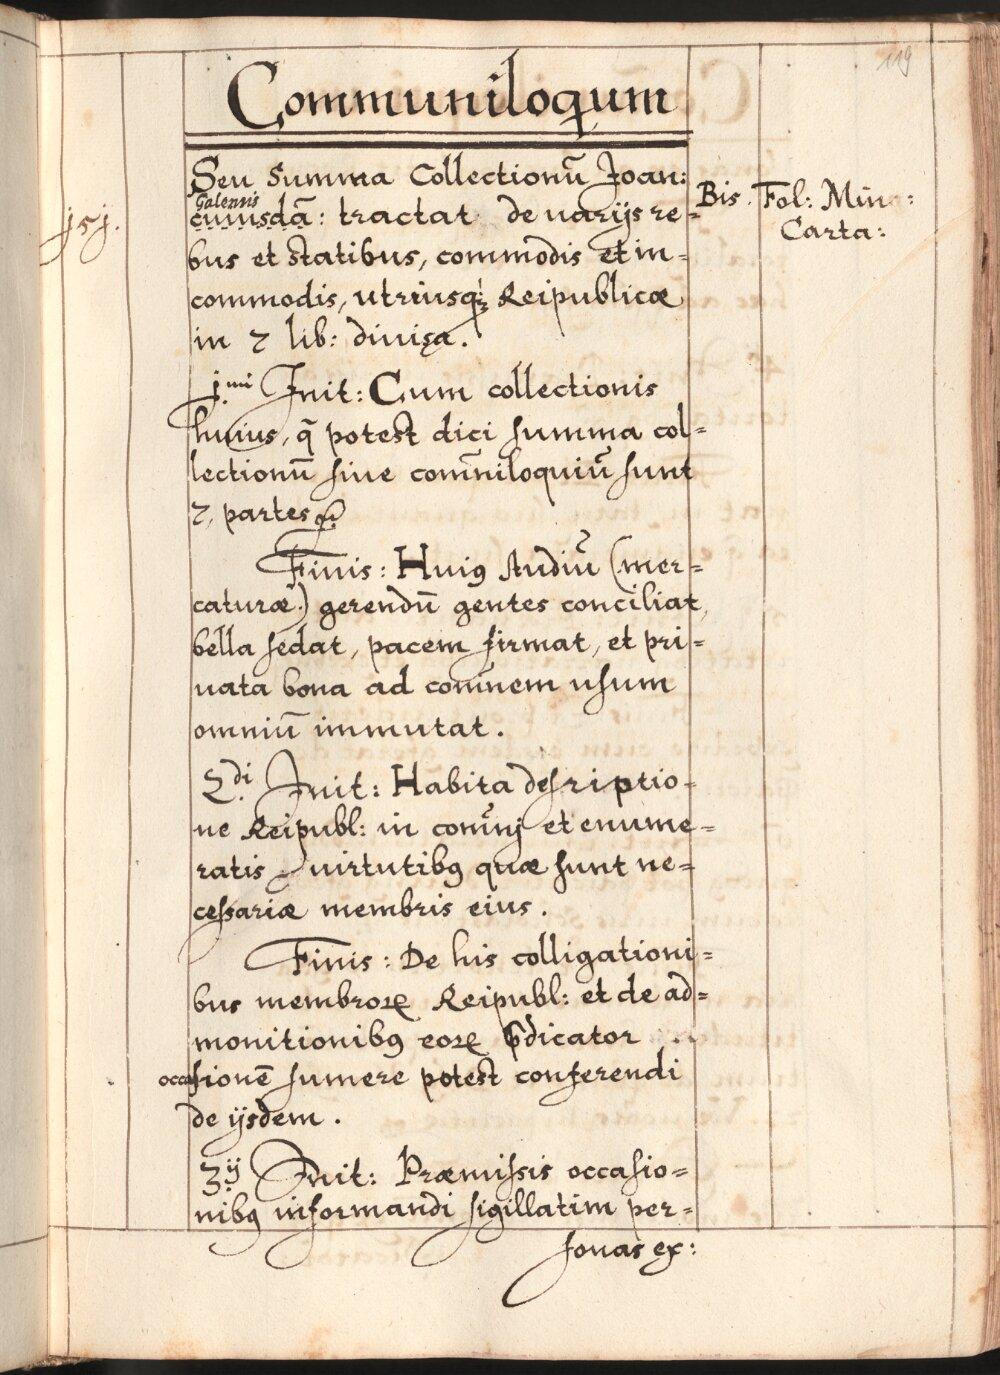 119
Communiloqum
Seu Summa Collectionū Joan:
Galensis
cuiusdā: tractat de varijs re=
Bis. Fol: Min:
Carta:
j5j.
bus et statibus, commodis et in=
commodis, utriusq; Reipublicæ
in 7 lib: divisa.
j.mi Init: Cum collectionis
huius, q̄ potest dici summa col=
lectionū sive com̄niloquiū sunt
7, partes
Finis: Huiꝰ studiū (mer=
caturæ.) gerendū gentes conciliat,
bella sedat, pacem firmat, et pri=
vata bona ad com̄nem usum
omniū immutat.
2.di Init: Habita descriptio=
ne Reipubl: in com̄nj et enume=
ratis virtutibꝰ quæ sunt ne=
cessariæ membris eius.
Finis: De his colligationi=
bus membroꝝ Reipubl: et de ad=
monitionibꝰ eoꝝ p̄dicator
occasionē sumere potest conferendi
de ijsdem.
3.ij Init: Præmissis occasio=
nibꝰ informandi sigillatim per=
sonas ex: